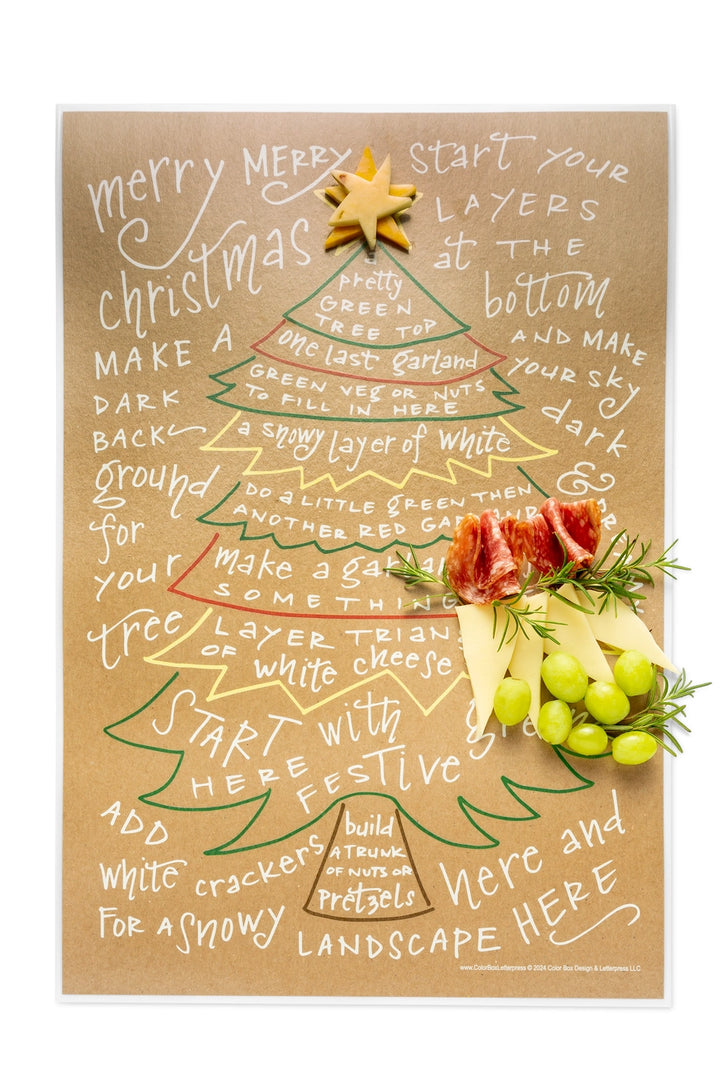 merry MERRY
christmas
MAKE A
DARK
BACK
ground
for
your
tree
start your
LAYERS
at THE
bottom
AND MAKE
your sky
dark
&
a
pretty
GREEN
TREE TOP
one last garland
GREEN VEG OR NUTS
TO FILL IN HERE
a snowy layer of white
DO a LITTLE GREEN THEN
ANOTHER RED
make a
SOMETHING
LAYER
OF white cheese
START with
HERE FESTIVE
build
A TRUNK
OF NUTS OR
pretzels
ADD
white crackers
FOR A SNOWY
LANDSCAPE HERE
here and
www.ColorBoxLetterpress © 2024 Color Box Design & Letterpress LLC